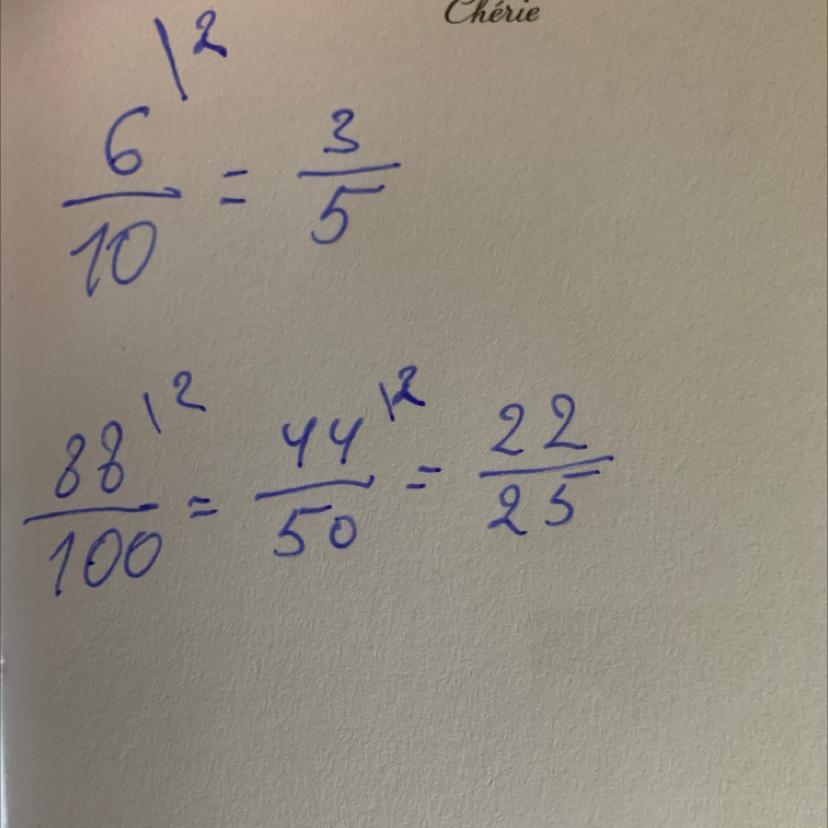 Chérie
6/10 |2 = 3/5
88/100 |2 = 44/50 |2 = 22/25